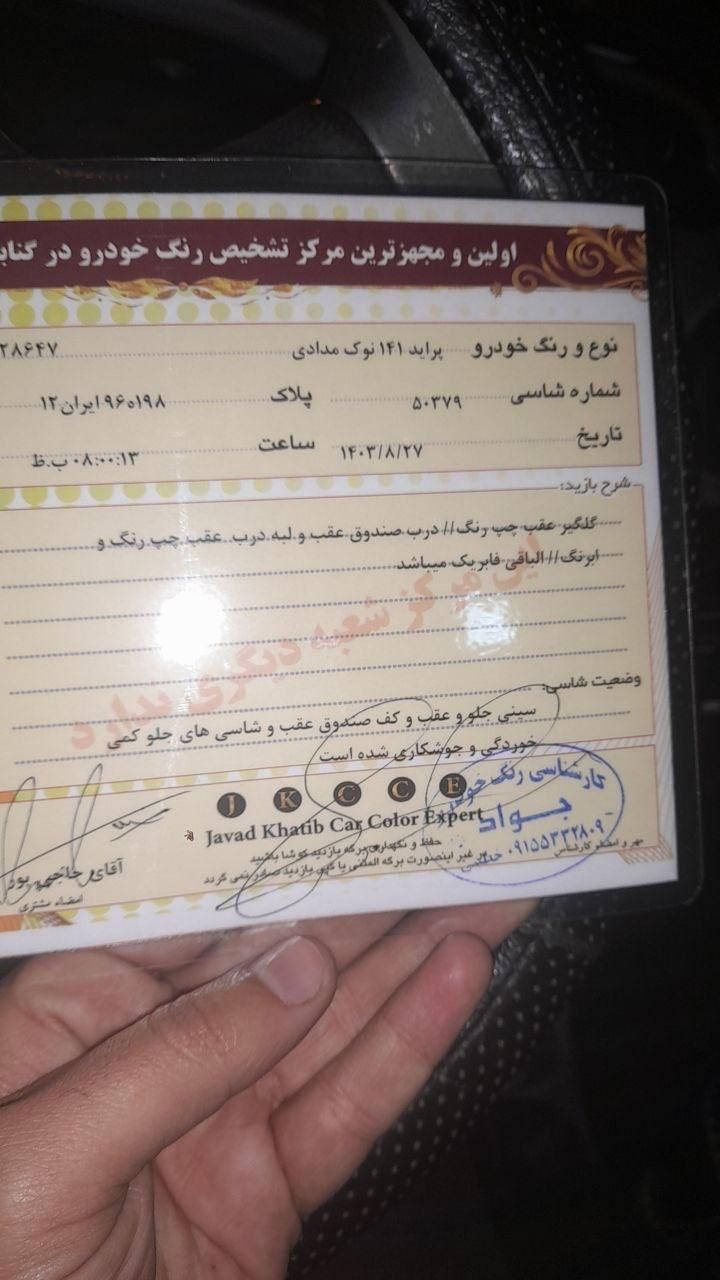 اولین و مجهزترین مرکز تشخیص رنگ خودرو در
نوع و رنگ خودرو پراید ۱۴۱ نوک مدادی ۲۸۶۴۷
شماره شاسی ۵۰۳۷۹ پلاک ۹۶۰۱۹۸ ایران ۱۲
تاریخ ۱۴۰۳/۸/۲۷ ساعت ۰۸:۰۰:۱۳ ب.ظ
شرح بازید:
گلگیر عقب چپ رنگ// درب صندوق عقب و لبه درب عقب چپ رنگ و
ابرنگ// الباقی فابریک میباشد
این مرکز شعبه دیگری ندارد
وضعیت شاسی:
سینی جلو و عقب و کف صندوق عقب و شاسی های جلو کمی
خوردگی و جوشکاری شده است
J K C C E
Javad Khatib Car Color Expert
حفظ و نگهداری برگه بازدید کوشا باشید
در غیر اینصورت برگه المثنی یا کپی بازدید صادر نمی گردد
آقای حاجی پور
امضاء مشتری
کارشناسی رنگ خودرو
جواد
۰۹۱۵۵۳۳۲۸۰۹
مهر و امضاء کارشناس